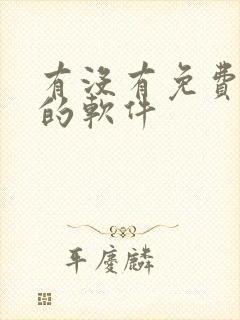 有没有免費
的軟件
平慶麟